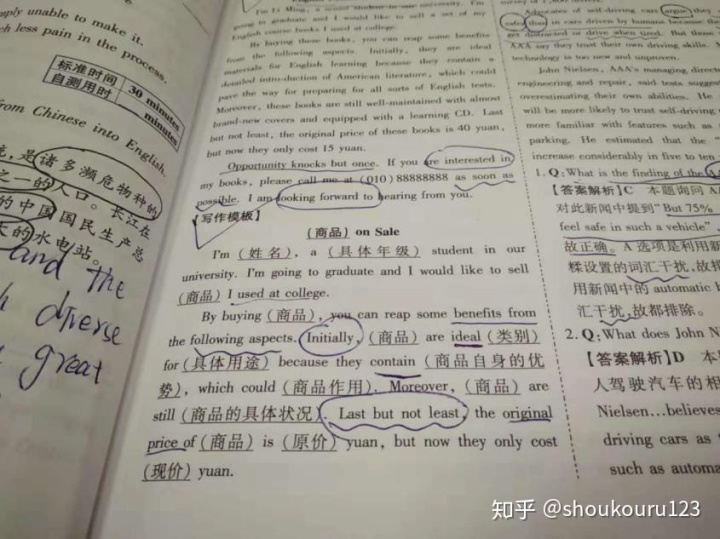 mply unable to make it.
ch less pain in the process.
标准时间 30 minutes
自测用时 minutes
from Chinese into English.
是诸多濒危物种的
之一的人口。长江在
的中国国民生产总
大的水电站。
and the
diverse
great
I'm Li Ming, a senior student in our university. I'm
going to graduate and I would like to sell a set of my
English course books I used at college.
By buying those books, you can reap some benefits
from the following aspects. Initially, they are ideal
materials for English learning because they contain a
detailed introduction of American literature, which could
pave the way for preparing for all sorts of English tests.
Moreover, these books are still well-maintained with almost
brand-new covers and equipped with a learning CD. Last
but not least, the original price of these books is 40 yuan,
but now they only cost 15 yuan.
Opportunity knocks but once. If you are interested in
my books, please call me at (010)88888888 as soon as
possible. I am looking forward to hearing from you.
【写作模板】
(商品) on Sale
I'm (姓名), a (具体年级) student in our
university. I'm going to graduate and I would like to sell
(商品) I used at college.
By buying (商品), you can reap some benefits from
the following aspects. Initially, (商品) are ideal (类别)
for (具体用途) because they contain (商品自身的优
势), which could (商品作用). Moreover, (商品) are
still (商品的具体状况). Last but not least, the original
price of (商品) is (原价) yuan, but now they only cost
(现价) yuan.
Advocates of self-driving cars argue they
safer than in cars driven by humans because the
get distracted or drive when tired. But those
AAA say they trust their own driving skills.
technology is too new and unproven.
John Nielsen, AAA's managing direct
engineering and repair, said tests suggest
overestimating their own abilities. He
will be more likely to trust self-driving
more familiar with features such as
parking. He estimated that the
increase considerably in five to ten
1. Q: What is the finding of the A
【答案解析】C 本题询问 A
对此新闻中提到"But 75%
feel safe in such a vehicle"
故正确。A 选项是利用新
糅设置的词汇干扰,故排
用新闻中的 automatic b
汇干扰,故都排除。
2. Q: What does John N
【答案解析】D 本
人驾驶汽车的相
Nielsen...believes
driving cars as
such as automa
知乎 @shoukouru123